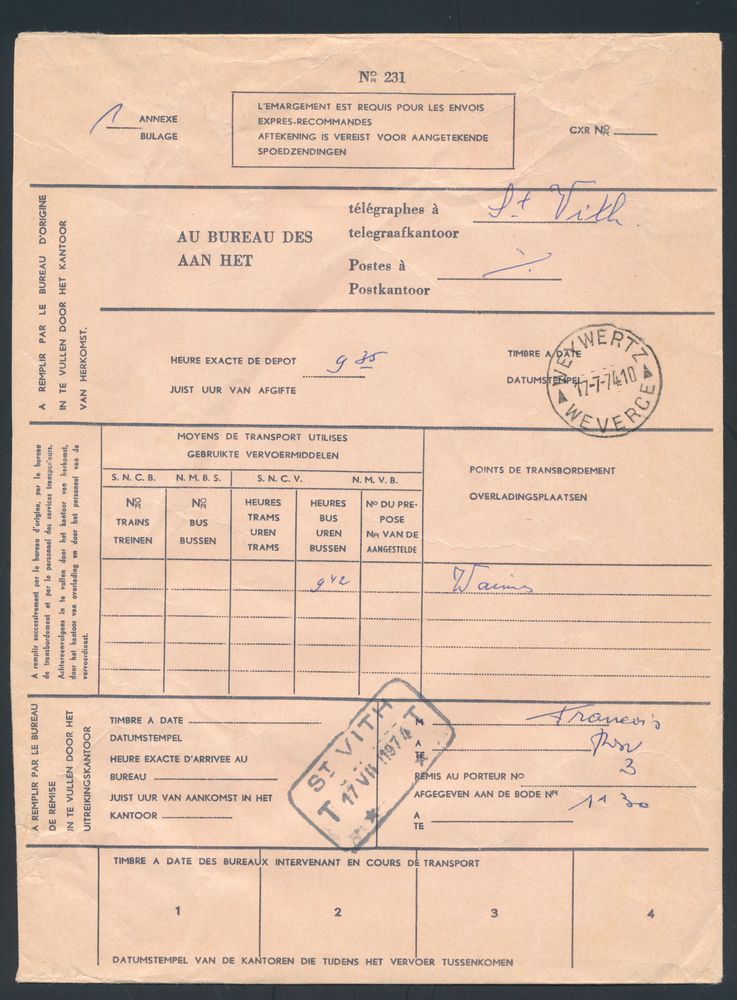 Nº/R 231
1 ANNEXE
BIJLAGE
L'EMARGEMENT EST REQUIS POUR LES ENVOIS
EXPRES-RECOMMANDES
AFTEKENING IS VEREIST VOOR AANGETEKENDE
SPOEDZENDINGEN
CXR Nº/R
A REMPLIR PAR LE BUREAU D'ORIGINE
IN TE VULLEN DOOR HET KANTOOR
VAN HERKOMST.
AU BUREAU DES
AAN HET
télégraphes à St Vith
telegraafkantoor
Postes à
Postkantoor
HEURE EXACTE DE DEPOT 9 35
JUIST UUR VAN AFGIFTE
TIMBRE A DATE
DATUMSTEMPEL
WEYWERTZ
17-7-74 10
WEVERCE
A remplir successivement par le bureau d'origine, par le bureau
de transbordement et par le personnel des services transporteurs.
Achtereenvolgens in te vullen door het kantoor van herkomst,
door het kantoor van overlading en door het personeel van de
vervoerdienst.
MOYENS DE TRANSPORT UTILISES
GEBRUIKTE VERVOERMIDDELEN
S. N. C. B. N. M. B. S. S. N. C. V. N. M. V. B.
Nº/R
TRAINS
TREINEN
Nº/R
BUS
BUSSEN
HEURES
TRAMS
UREN
TRAMS
HEURES
BUS
UREN
BUSSEN
Nº DU PRE-
POSE
NR VAN DE
AANGESTELDE
POINTS DE TRANSBORDEMENT
OVERLADINGSPLAATSEN
9 42 Waimes
A REMPLIR PAR LE BUREAU
DE REMISE
IN TE VULLEN DOOR HET
UITREIKINGSKANTOOR
TIMBRE A DATE
DATUMSTEMPEL
HEURE EXACTE D'ARRIVEE AU
BUREAU
JUIST UUR VAN AANKOMST IN HET
KANTOOR
ST VITH
T 17 VII 1974 T
M François
A
TE
REMIS AU PORTEUR Nº 3
AFGEGEVEN AAN DE BODE NR
11 30
A
TE
TIMBRE A DATE DES BUREAUX INTERVENANT EN COURS DE TRANSPORT
1 2 3 4
DATUMSTEMPEL VAN DE KANTOREN DIE TIJDENS HET VERVOER TUSSENKOMEN